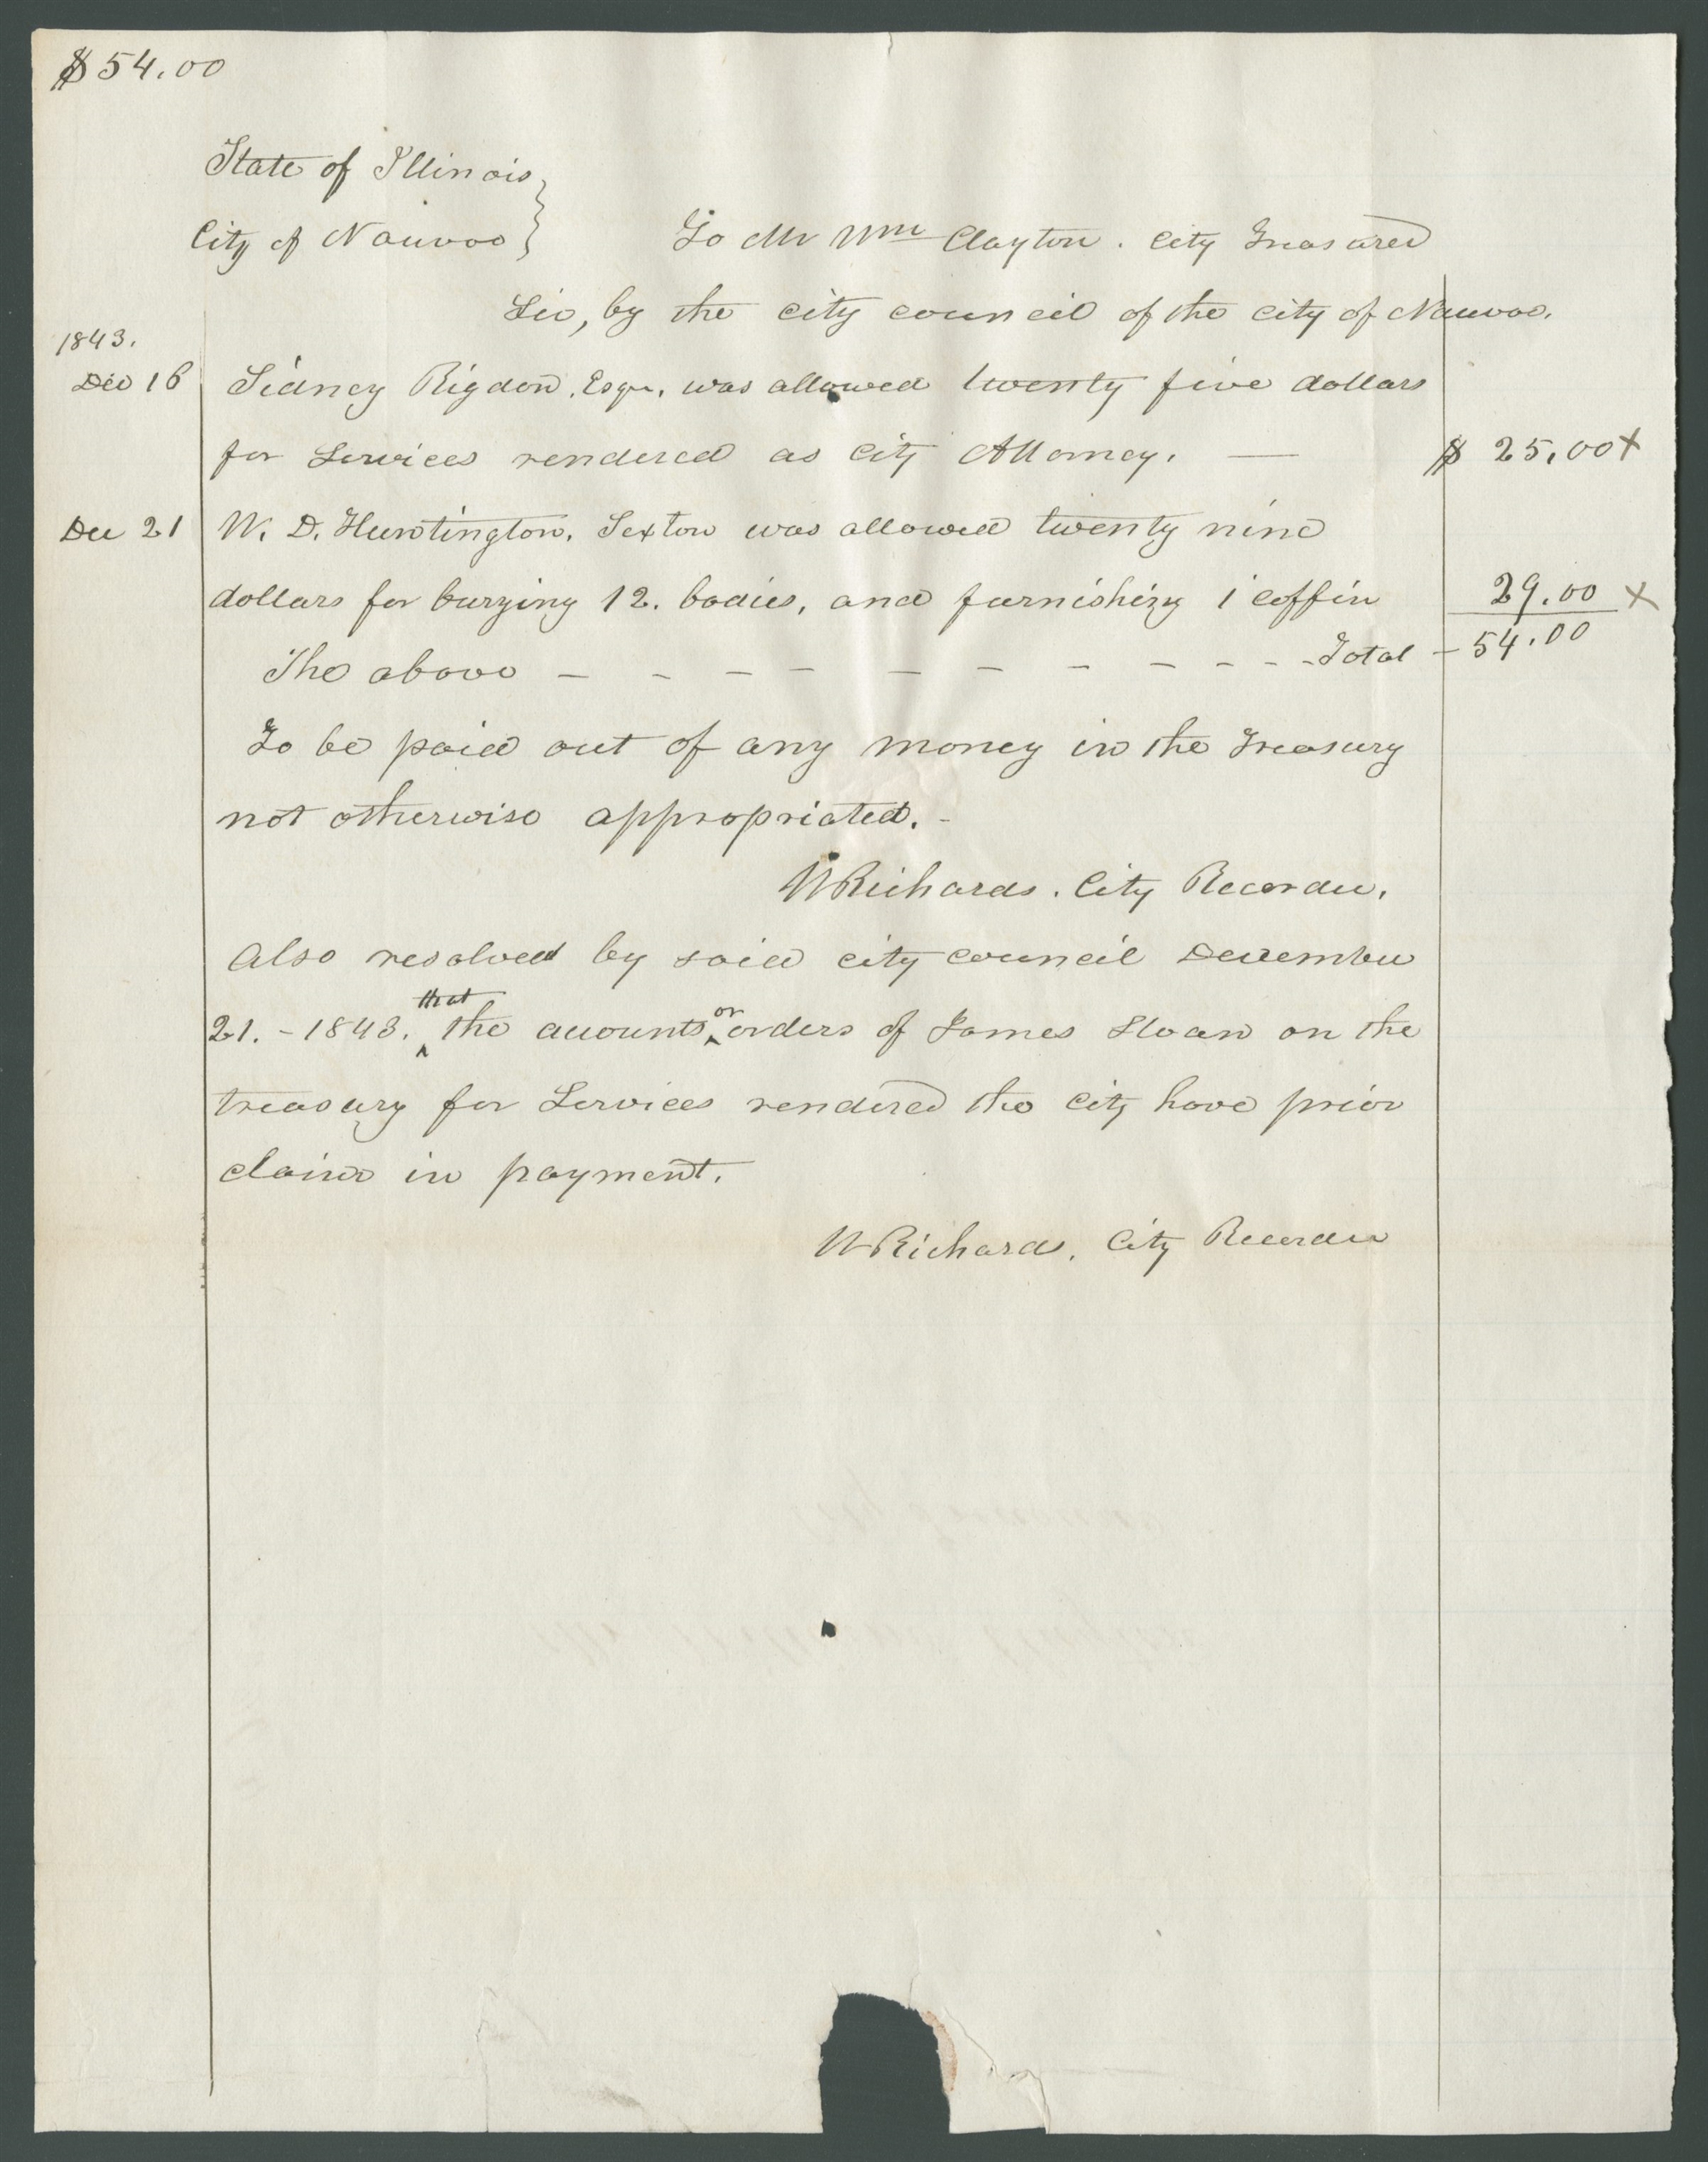 $54.00
State of Illinois
City of Nauvoo } To Mr Wm Clayton. City Treasurer
Sir, by the city council of the city of Nauvoo.
1843.
Dec 16 Sidney Rigdon, Esqr. was allowed twenty five dollars
for Services rendered as City Attorney. — $ 25,00 X
Dec 21 W. D. Huntington. Sexton was allowed twenty nine
dollars for burying 12. bodies, and furnishing 1 coffin 29.00 X
The above — - — — — — — — - - - Total — 54.00
To be paid out of any money in the Treasury
not otherwise appropriated. -
W Richards. City Recorder.
Also resolved by said city council December
21. - 1843. ^that the accounts ^or orders of James Sloan on the
treasury for Services rendered the city have prior
claim in payment.
W Richards, City Recorder